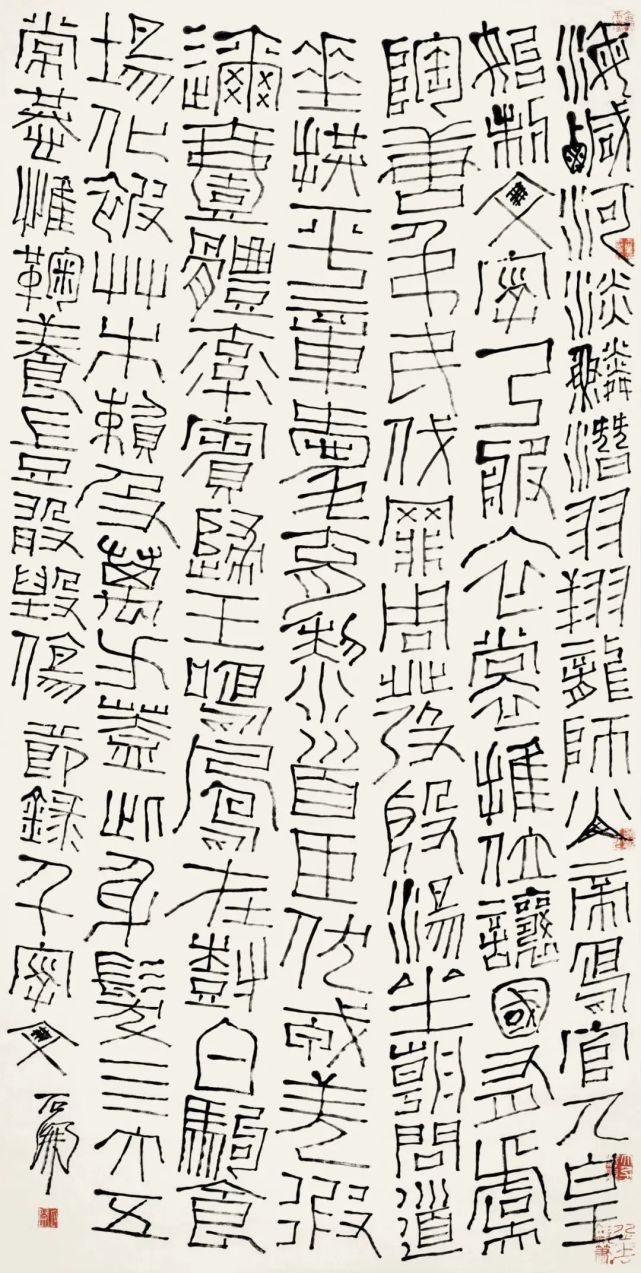 海鹹河淡鱗潛羽翔龍師火帝鳥官人皇
始制文字乃服衣裳推位讓國有虞
陶唐弔民伐罪周發殷湯坐朝問道
垂拱平章愛育黎首臣伏戎羌遐
邇壹體率賓歸王鳴鳳在樹白駒食
場化被艸木賴及萬方蓋此身髮亖大五
常恭惟鞠養豈敢毀傷 節錄千字文 石開